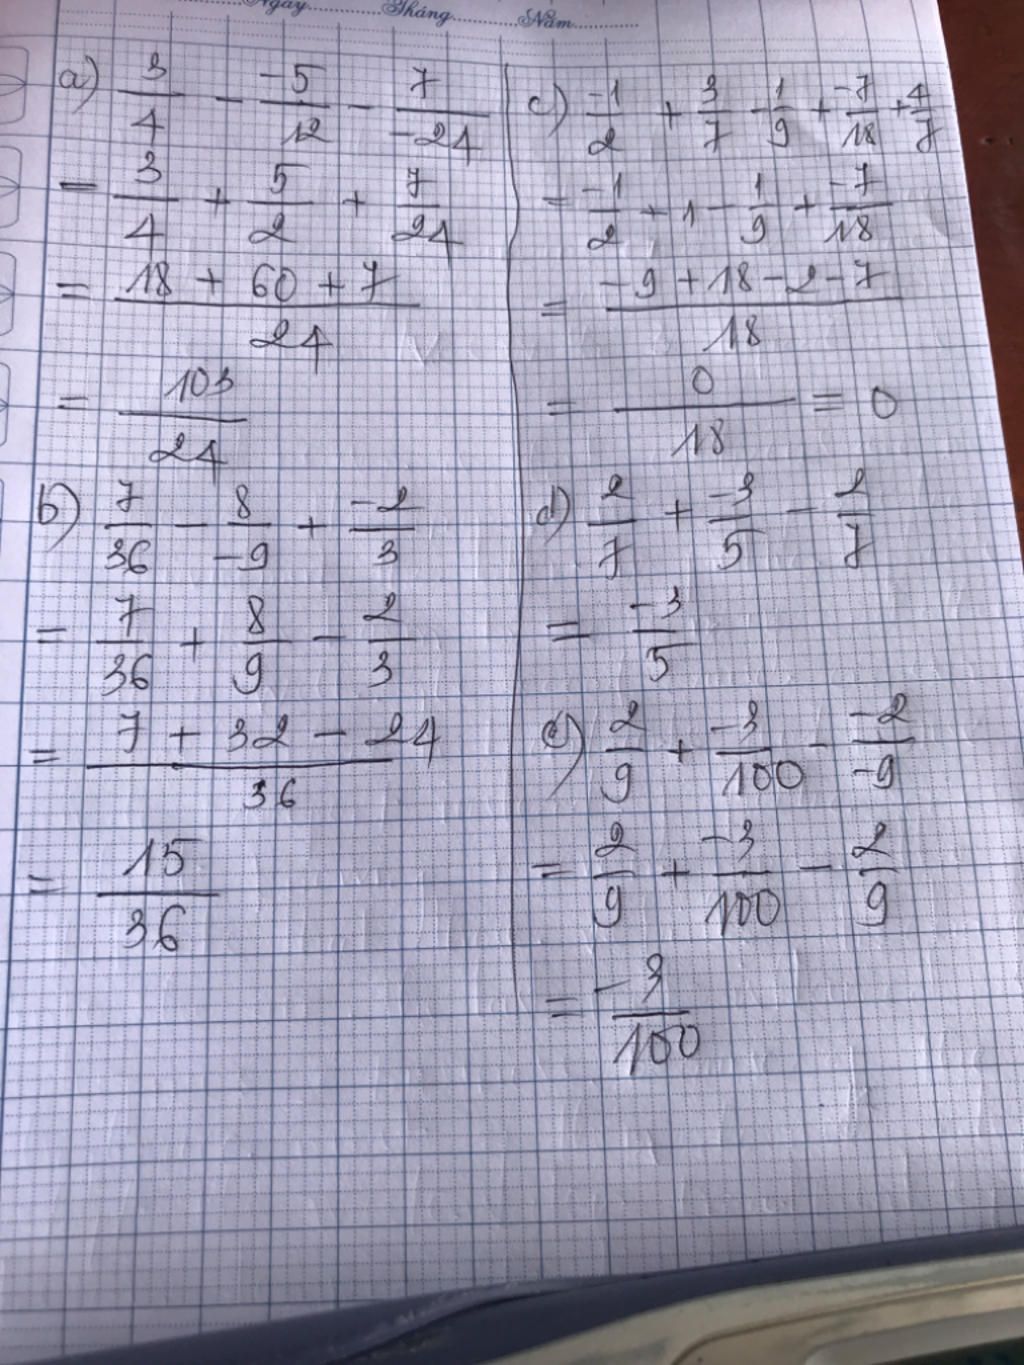 Ngày.............Tháng.............Năm.............
a) 3/4 - -5/12 - 7/-24
= 3/4 + 5/2 + 7/24
= (18 + 60 + 7)/24
= 103/24
b) 7/36 - 8/-9 + -2/3
= 7/36 + 8/9 - 2/3
= (7 + 32 - 24)/36
= 15/36
c) -1/2 + 3/7 - 1/9 + -7/18 + 4/7
= -1/2 + 1 - 1/9 + -7/18
= (-9 + 18 - 2 - 7)/18
= 0/18 = 0
d) 2/7 + -3/5 - 2/7
= -3/5
e) 2/9 + -3/100 - -2/-9
= 2/9 + -3/100 - 2/9
= -3/100